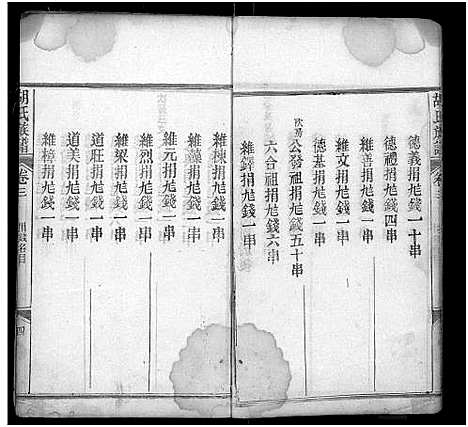 胡氏族譜
卷三
德義捐尨錢一十串
德禮捐尨錢四串
維善捐尨錢一串
維文捐尨錢一串
德基捐尨錢一串
次房
公發祖捐尨錢五十串
六合祖捐尨錢六串
維鐸捐尨錢一串
維棟捐尨錢一串
維藻捐尨錢一串
維元捐尨錢一串
維烈捐尨錢一串
維梁捐尨錢一串
道旺捐尨錢一串
道美捐尨錢一串
維樟捐尨錢一串
胡氏族譜
卷三
四